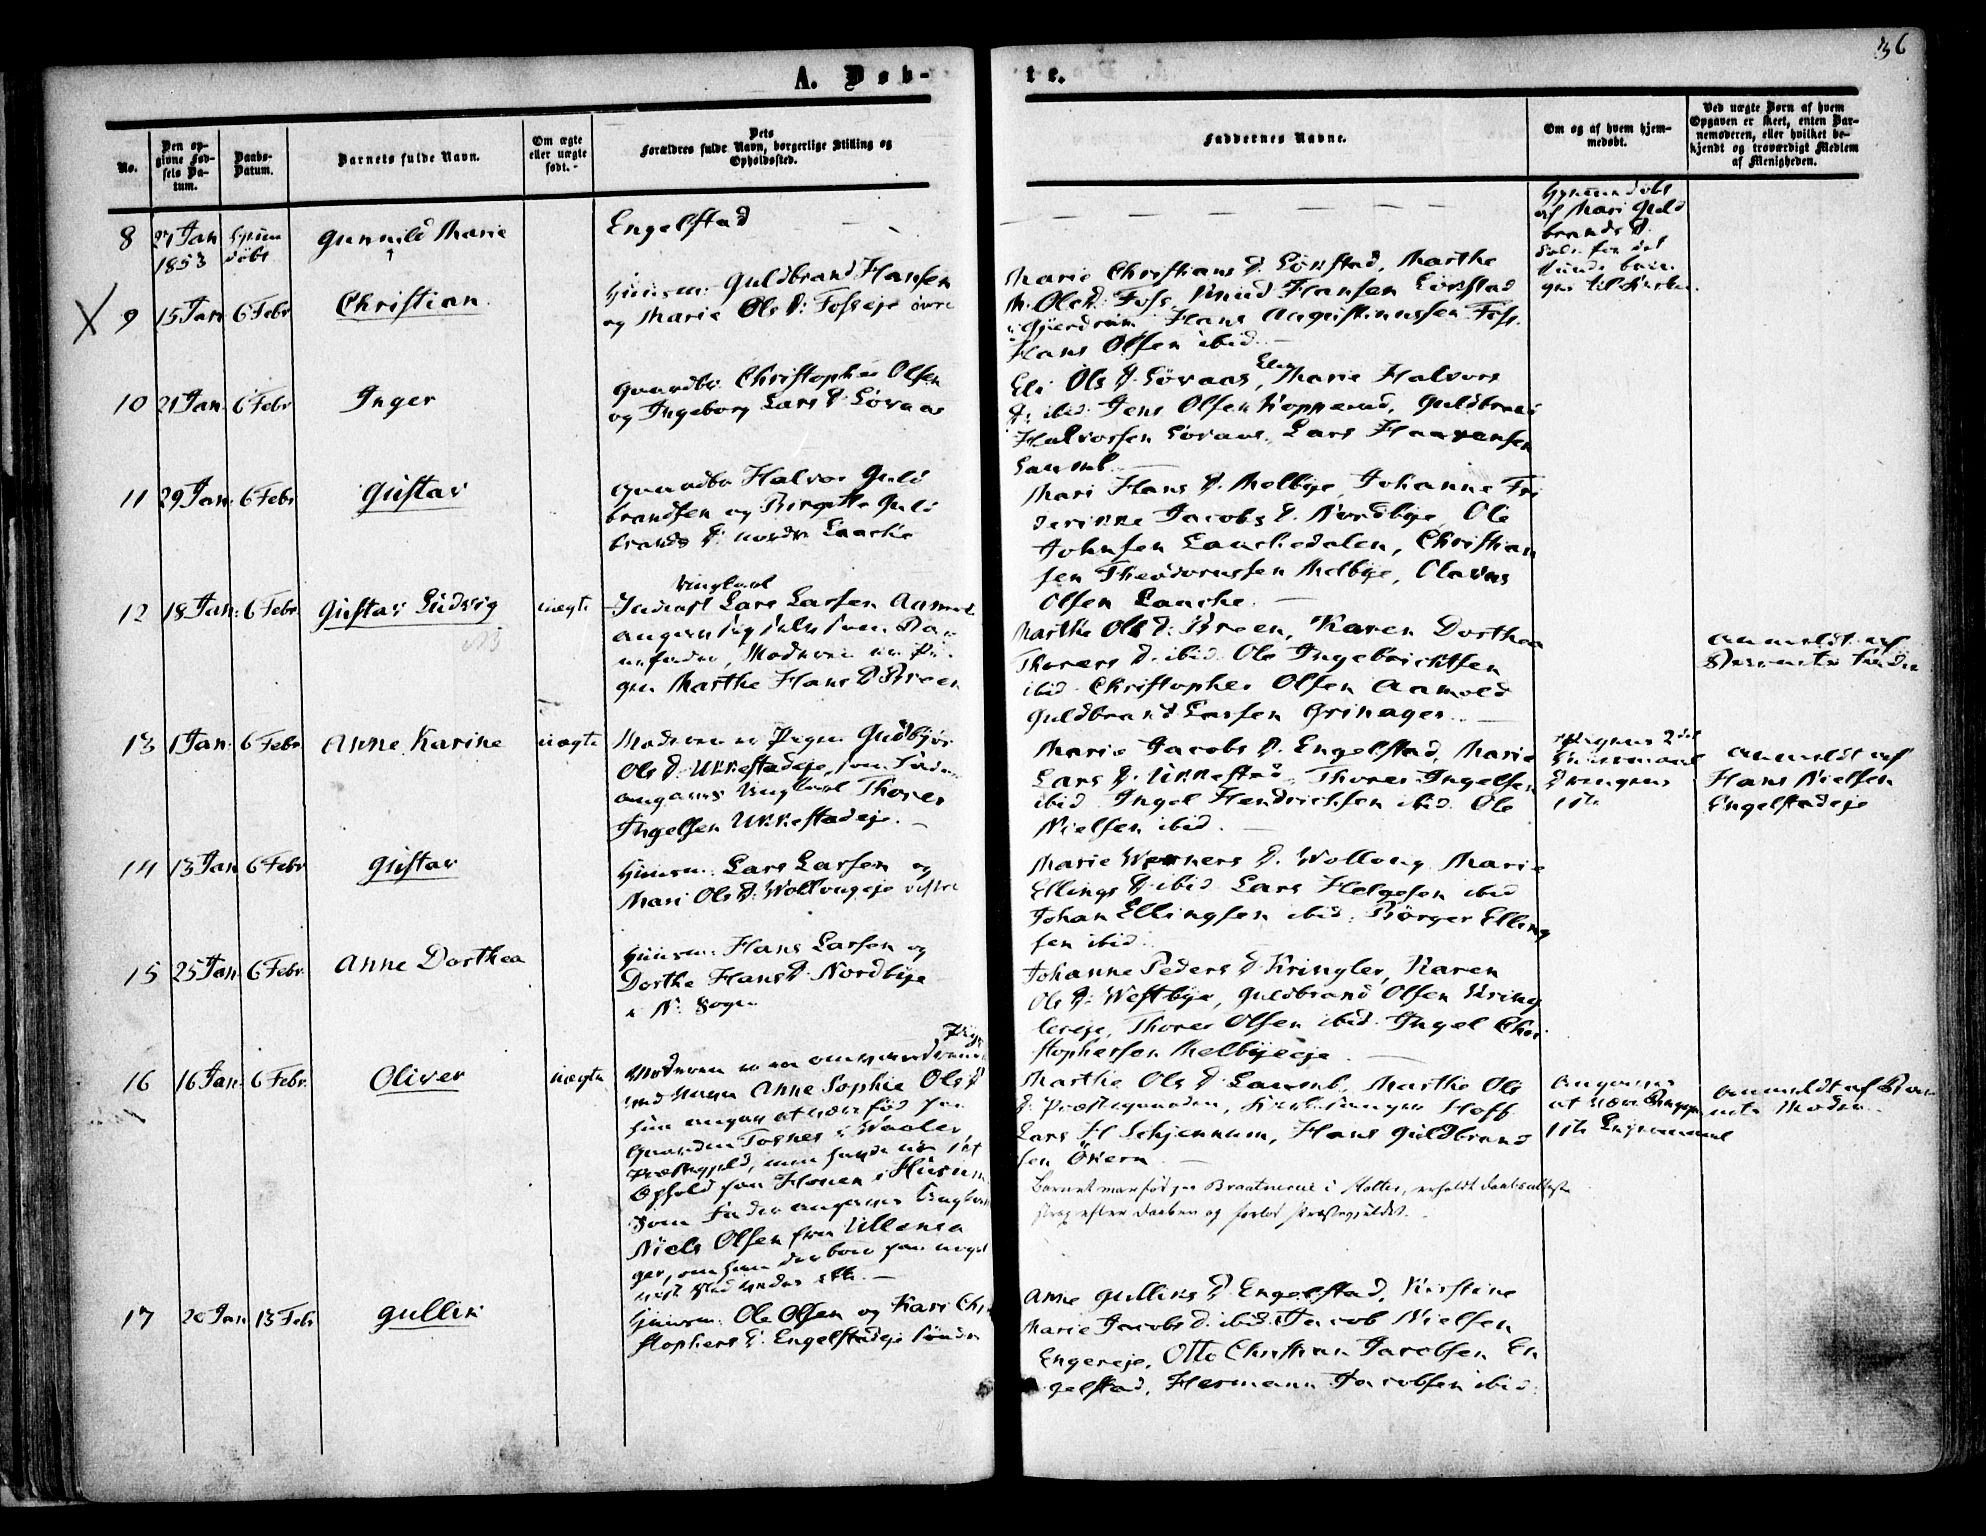 36
A. Døb-
te.
No.
Den op-
givne Fød-
sels Da-
tum.
Daabs-
Datum.
Barnets fulde Navn.
Om ægte
eller uægte
født.
Dets
Forældres fulde Navn, borgerlige Stilling og
Opholdssted.
Faddernes Navne.
Om og af hvem hjem-
medøbt.
Ved uægte Børn af hvem
Opgaven er skeet, enten Bar-
nemoderen, eller hvilket be-
kjendt og troværdigt Medlem
af Menigheden.
8
27 Jan
1853
døbt
Gunnild Marie
Engelstad
af Mari Guld
brands D.
9
15 Jan
6 Febr
Christian
Huusm: Guldbrand Hansen
og Marie Ols D: Fosseje øvre
Marie Christians D. Lönstad, Marthe
M. Ols D: Foss, Knud Hansen Lönstad
i Gjerdrum, Hans Augustinussen Foss.
Hans Olsen ibid.
10
21 Jan
6 Febr
Inger
Gaardbr. Christopher Olsen
og Ingeborg Lars D. Løvaas
Eli Ols D. Løvaas, Marie Halvors
D: ibid. Jens Olsen Kopperud, Guldbrand
Halvorsen Løvaas, Lars Haavensen
11
29 Jan
6 Febr
Gustav
Gaardbr Halvor Guld
brandsen og Birgitte Guld
brands D: nordre Laache
Mari Hans D. Melbye, Johanne Fri
derikke Jacobs D. Nordbye, Ole
Johnsen Laachedalen, Christian
sen Theodorussen Melbye, Olavus
Olsen Laache.
12
18 Jan:
6 Febr.
Gustav Ludvig
uægte
Ungkarl
Lars Larsen Aamold
angav sig selv som Bar
nefader, Moderen er Pi
gen Marthe Hans D Breen
Marthe Ols D: Breen, Karen Dorthea
Thorers D. ibid. Ole Ingebrichtsen
ibid. Christopher Olsen Aamold
Guldbrand Larsen Grinager.
anmeldt af
Barnets Fader
13
1 Jan:
6 Febr
Anne Karine
uægte
Moderen er Pigen Gudbjør
Ols D. Ukkestadeje, som Fader
angaves Ungkarl Thorer
Ingelsen Ukkestadeje.
Marie Jacobs D. Engelstad, Marie
Lars D. Ukkestad, Thorer Ingelsen
ibid. Ingel Hendrichsen ibid. Ole
Nielsen ibid.
Pigens 2det
Leiermaal
Drengens
1ste
anmeldt af
Hans Nielsen
Engelstadeje
14
13 Jan
6 Febr
Gustav
Huusm: Lars Larsen og
Mari Ols D: Wollaugeje
Marie Werners D. Wollaug, Marie
Ellings D ibid. Lars Helgesen ibid
Johan Ellingsen ibid. Børger Elling
sen ibid.
15
25 Jan
6 Febr.
Anne Dorthea
Huusm: Hans Larsen og
Dorthe Hans D. Nordbye
i N: Sogn
Johanne Peders D Kringler, Karen
Ols D: Westbye, Guldbrand Olsen Kring
lereje, Thorer Olsen ibid. Ingel Chri
stophersen Melbyeeje
16
16 Jan:
6 Febr.
Oliver
uægte
Moderen er en omvandrende
Pige
ved Navn Anne Sophie Ols D
hun angav at være fød paa
Gaarden Tosnes i Waaler
Præstegjeld, men havde nu sit
Ophold paa Honen i
Som Fader angaves Ungkarl
Niels Olsen fra Ullensa
ger, om hun der boer paa noget
vist Sted vides ikke.
Marthe Ols D. Laumb, Marthe Ols
D. Præstegaarden, Kirkesanger Hoff
Lars H Schjennum, Hans Guldbrand
sen Økern
Barnet var født paa Braatnerne i Holter, erholdt daabsattest
strax efter daaben og forlod Præstegjeldet.
Angaves
at være Pigens
1ste Leiermaal
anmeldt af Bar
nets Moder.
17
20 Jan
13 Febr
Gullik
Huusm: Ole Olsen og Kari Chri
stophers D: Engelstadeje søndre
Anne Gulliks D Engelstad, Kirstine
Marie Jacobs D. ibid. Jacob Nielsen
Engereje, Otto Christian Jacobsen En
gelstad, Hermann Jacobsen ibid.